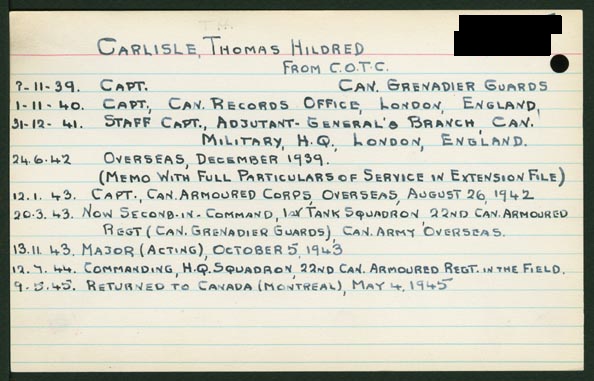 T.H.
CARLISLE, THOMAS HILDRED
FROM C.O.T.C.
?-11-39. CAPT. CAN. GRENADIER GUARDS
1-11-40. CAPT., CAN. RECORDS OFFICE, LONDON, ENGLAND,
31-12-41. STAFF CAPT., ADJUTANT-GENERAL'S BRANCH, CAN.
MILITARY, H.Q. LONDON, ENGLAND.
24.6.42 OVERSEAS, DECEMBER 1939.
(MEMO WITH FULL PARTICULARS OF SERVICE IN EXTENSION FILE)
12.1.43. CAPT., CAN. ARMOURED CORPS, OVERSEAS, AUGUST 26, 1942
20.3.43. NOW SECOND-IN-COMMAND, 1ST TANK SQUADRON, 22ND CAN. ARMOURED
REGT (CAN. GRENADIER GUARDS), CAN. ARMY OVERSEAS.
13.11.43. MAJOR (ACTING), OCTOBER 5, 1943
12.7.44. COMMANDING, H.Q. SQUADRON, 22ND CAN. ARMOURED REGT. IN THE FIELD.
9.5.45. RETURNED TO CANADA (MONTREAL), MAY 4, 1945